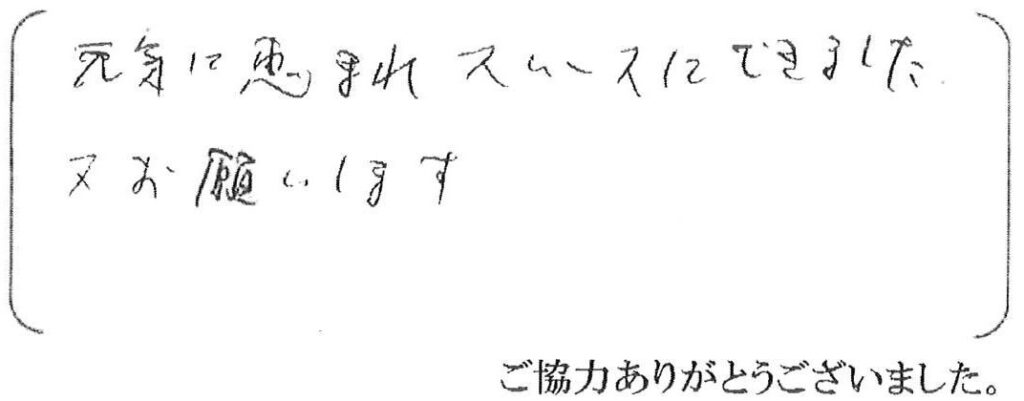 元気に恵まれ スムースにできました
又お願いします
ご協力ありがとうございました。